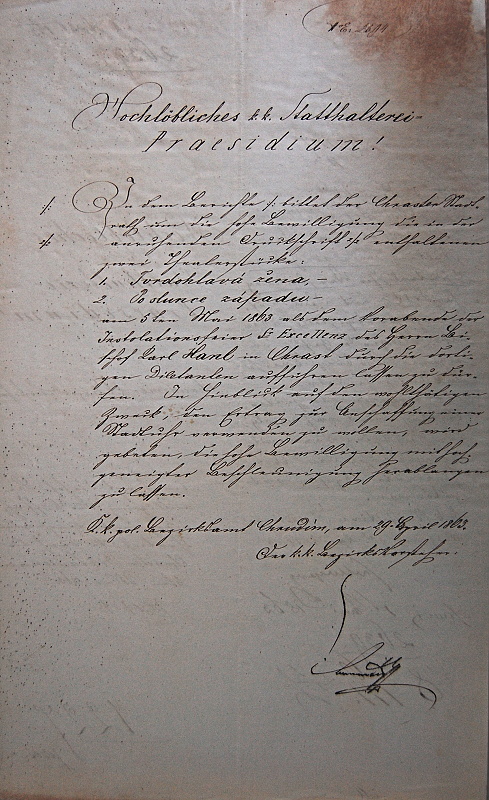 Hochlöbliches k. k. Statthalterei-
Praesidium!
In dem Berichte ·/· bittet der Chraster Stadt-
rath um die hohe Bewilligung die in der
anruhenden Druckschrift ·/· enthaltenen
zwei Theaterstücke:
1. Tvrdohlavá žena, -
2. Po slunce západu -
am 5ten Mai 1863 als dem Vorabende der
Installationsfeier Sr Excellenz des Herrn Bi-
schof Karl Hanl in Chrast durch die dorti-
gen Diletanten aufführen lassen zu dür-
fen. In Hinblick auf den wohlthätigen
Zweck, den Ertrag zur Anschaffung einer
Stadtuhr verwenden zu wollen, wird
gebeten, die hohe Bewilligung mit hoch-
geneigter Beschleunigung herablangen
zu lassen.
K. k. pol. Bezirksamt Chrudim, am 29 April 1863.
Der k. k. Bezirksvorsteher.